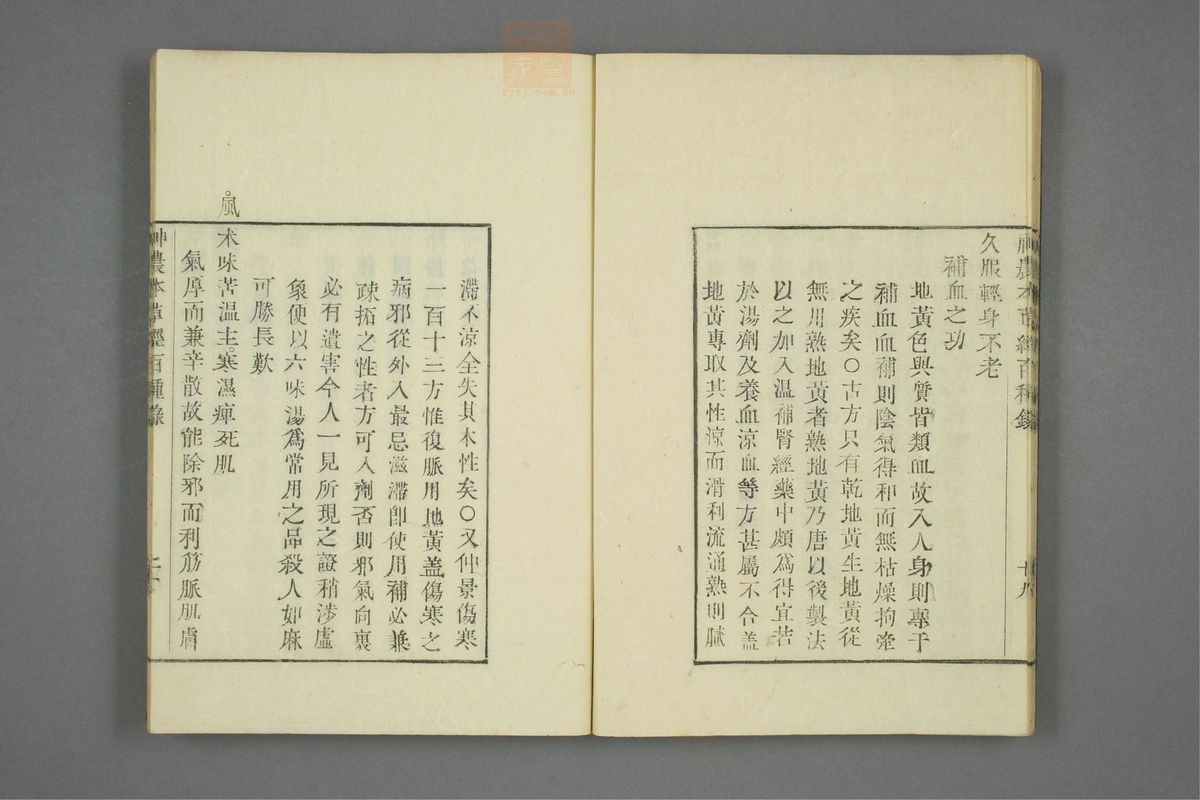 神農本草經百種錄
十九
久服輕身不老
補血之功
地黃色與質皆類血故入人身則專于
補血血補則陰氣得和而無枯燥拘牽
之疾矣〇古方只有乾地黃生地黃從
無用熟地黃者熟地黃乃唐以後製法
以之加入溫補腎經藥中頗為得宜若
於湯劑及養血涼血等方甚屬不合蓋
地黃專取其性涼而滑利流通熟則膩
滯不涼全失其本性矣〇又仲景傷寒
一百十三方惟復脈用地黃蓋傷寒之
病邪從外入最忌滋滯卽使用補必兼
疎拓之性者方可入劑否則邪氣向裏
必有遺害今人一見所現之證稍涉虛
象便以六味湯爲常用之品殺人如麻
可勝長歎
。風
术味苦溫主。寒濕痺死肌
氣厚而兼辛散故能除邪而利筋脈肌膚
神農本草經百種錄
二十
zysj.com.cn